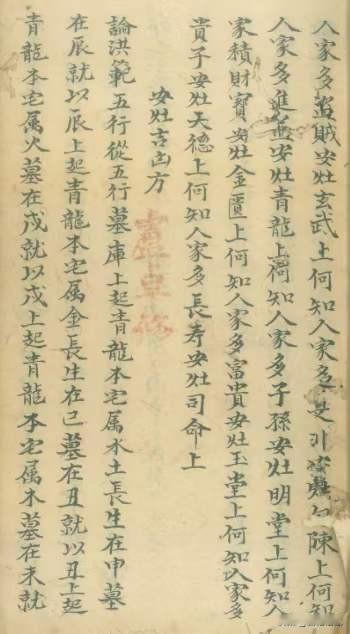 人家多盜賊安灶玄武上何知人家多是非安灶勾陳上何知
人家多進益安灶青龍上何知人家多子孫安灶明堂上何知人
家積財寶安灶金匱上何知人家多富貴安灶玉堂上何知人家多
貴子安灶天德上何知人家多長寿安灶司命上
安灶吉凶方
論洪範五行從五行墓庫上起青龍本宅属水土長生在申墓
在辰就以辰上起青龍本宅属金長生在巳墓在丑就以丑上起
青龍本宅属火墓在戌就以戌上起青龍本宅属木墓在未就